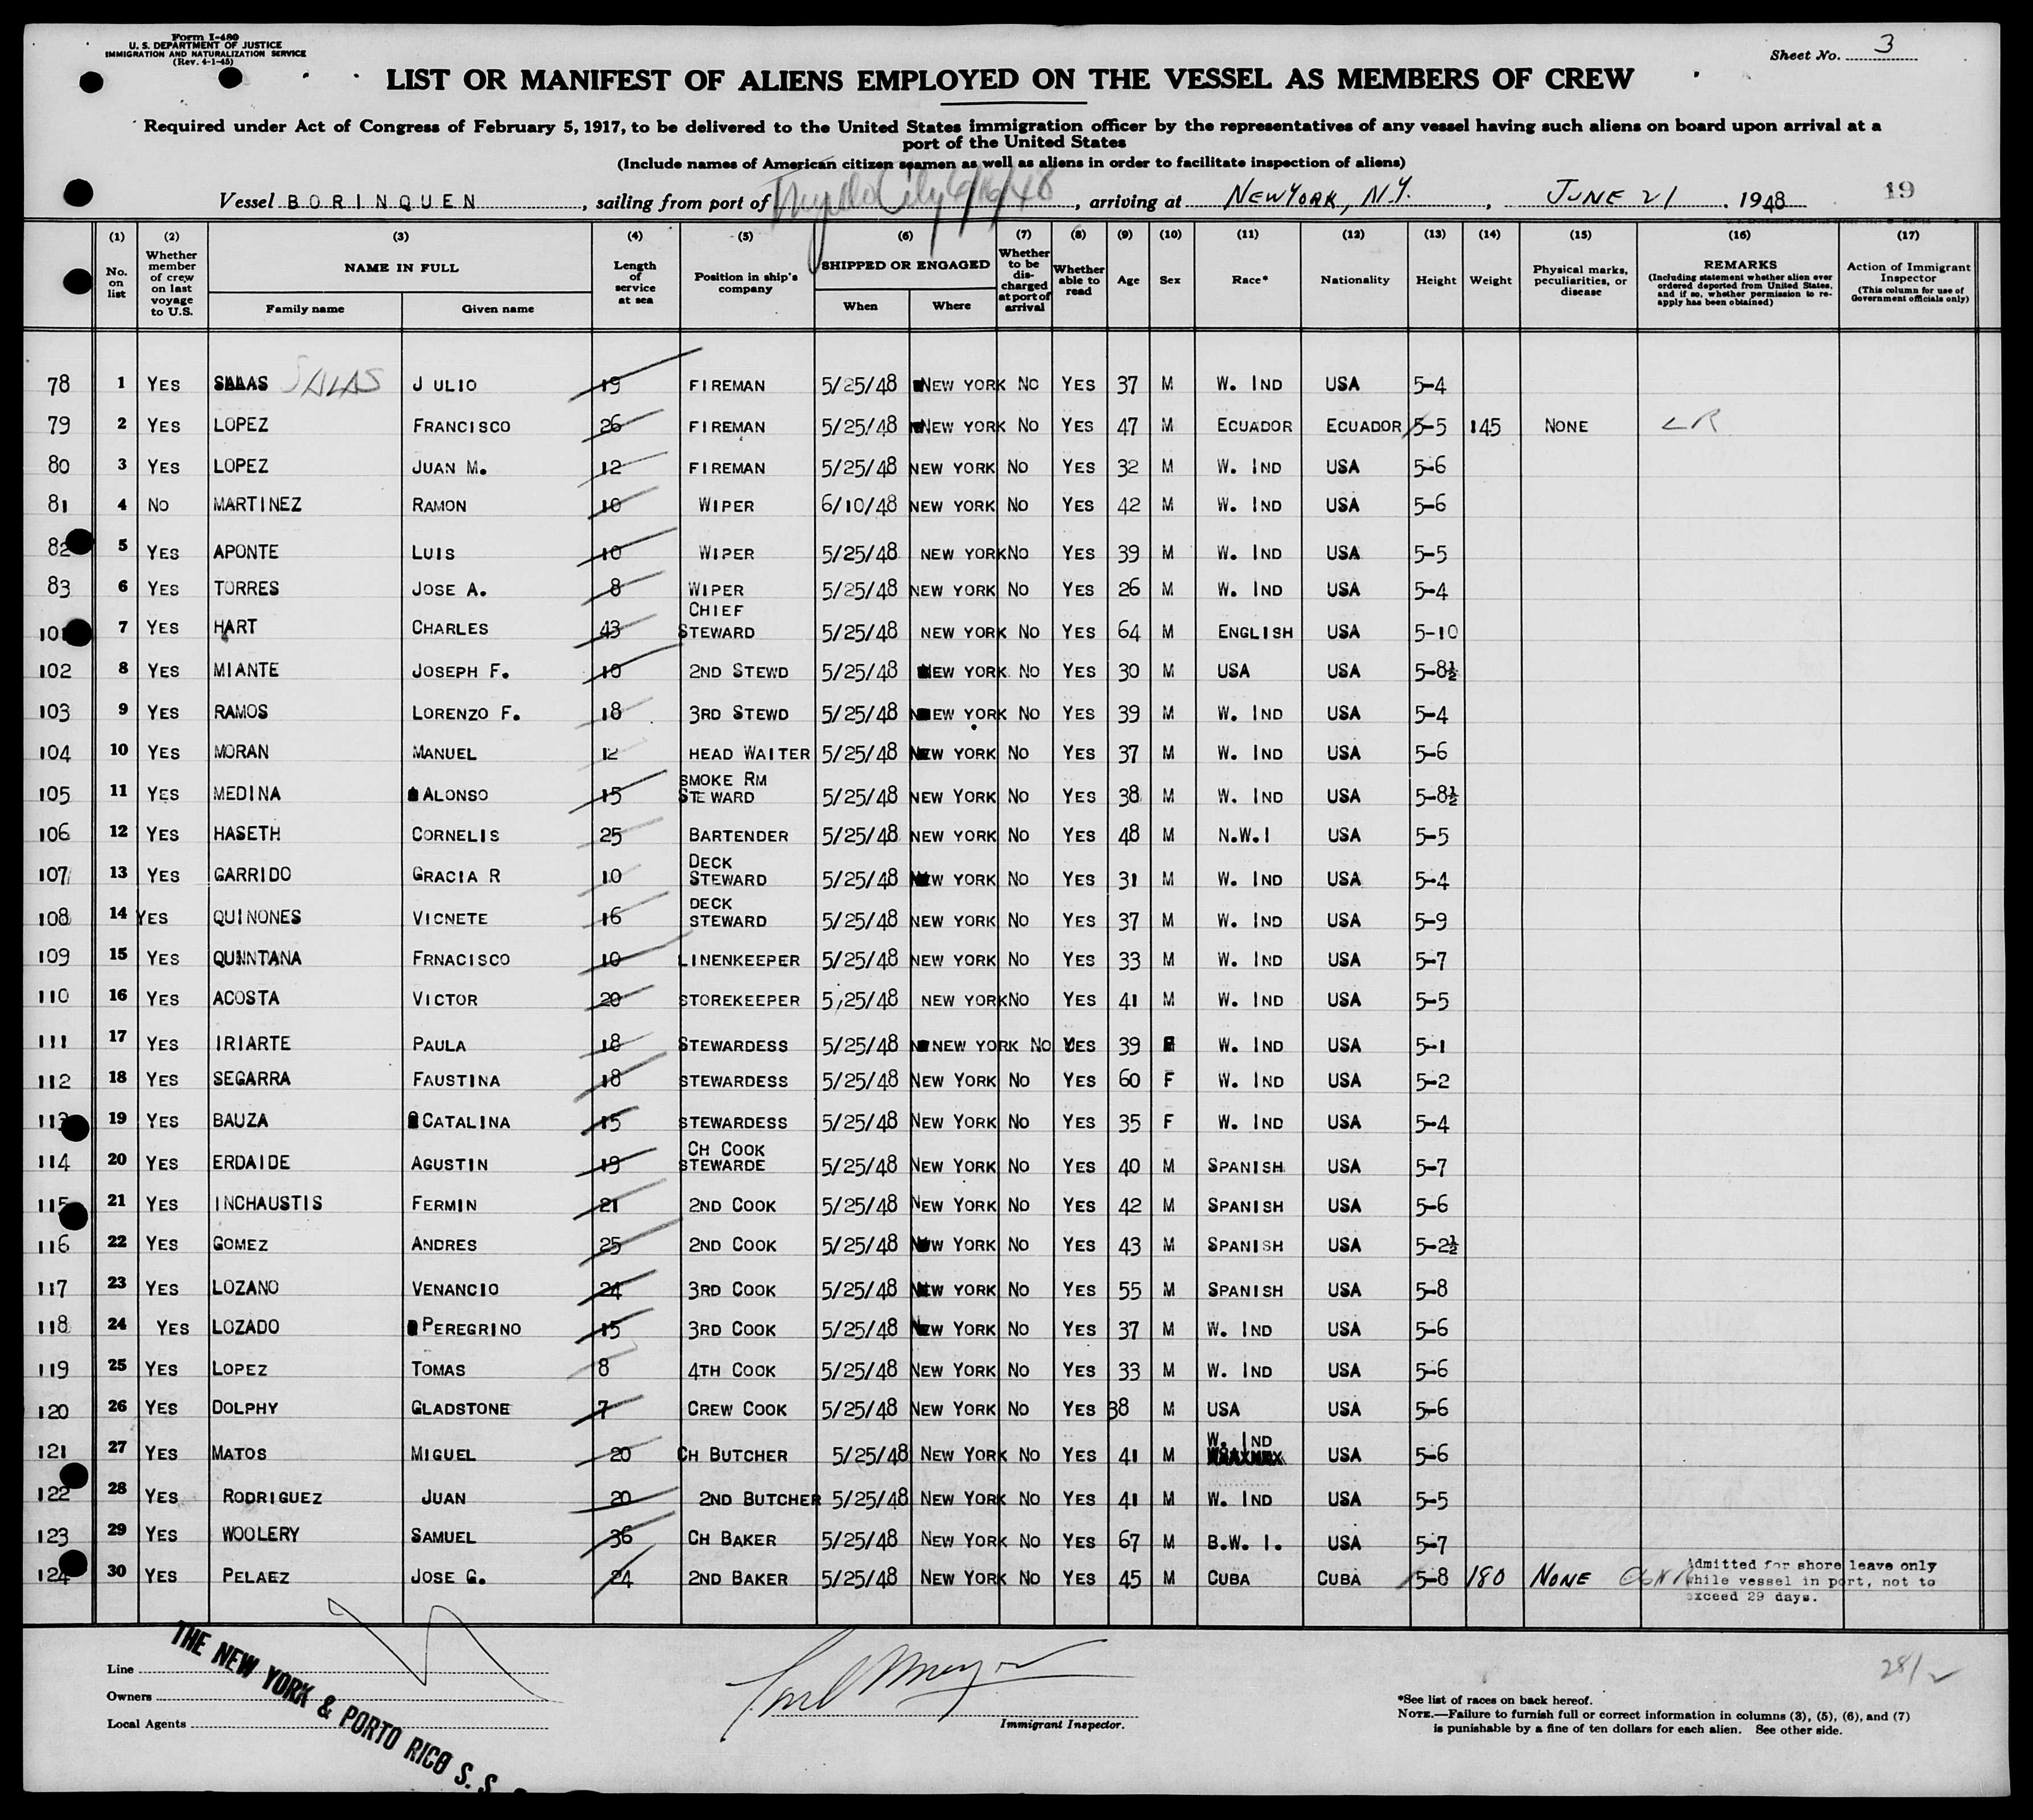 Form I-480
U. S. DEPARTMENT OF JUSTICE
IMMIGRATION AND NATURALIZATION SERVICE
(Rev. 4-1-45)
Sheet No. 3
LIST OR MANIFEST OF ALIENS EMPLOYED ON THE VESSEL AS MEMBERS OF CREW
Required under Act of Congress of February 5, 1917, to be delivered to the United States immigration officer by the representatives of any vessel having such aliens on board upon arrival at a
port of the United States
(Include names of American citizen seamen as well as aliens in order to facilitate inspection of aliens)
Vessel BORINQUEN, sailing from port of City 6/16/48, arriving at NEW YORK, N.Y., JUNE 21, 1948 19
(1) No. on list (2) Whether member of crew on last voyage to U.S. (3) NAME IN FULL Family name Given name (4) Length of service at sea (5) Position in ship's company (6) SHIPPED OR ENGAGED When Where (7) Whether to be discharged at port of arrival (8) Whether able to read (9) Age (10) Sex (11) Race* (12) Nationality (13) Height (14) Weight (15) Physical marks, peculiarities, or disease (16) REMARKS (Including statement whether alien ever ordered deported from United States, and if so, whether permission to reapply has been obtained) (17) Action of Immigrant Inspector (This column for use of Government officials only)
78 1 YES SALAS SALAS JULIO 19 FIREMAN 5/25/48 NEW YORK NO YES 37 M W. IND USA 5-4
79 2 YES LOPEZ FRANCISCO 26 FIREMAN 5/25/48 NEW YORK NO YES 47 M ECUADOR ECUADOR 5-5 145 NONE LR
80 3 YES LOPEZ JUAN M. 12 FIREMAN 5/25/48 NEW YORK NO YES 32 M W. IND USA 5-6
81 4 NO MARTINEZ RAMON 10 WIPER 6/10/48 NEW YORK NO YES 42 M W. IND USA 5-6
82 5 YES APONTE LUIS 10 WIPER 5/25/48 NEW YORK NO YES 39 M W. IND USA 5-5
83 6 YES TORRES JOSE A. 8 WIPER 5/25/48 NEW YORK NO YES 26 M W. IND USA 5-4
101 7 YES HART CHARLES 43 CHIEF STEWARD 5/25/48 NEW YORK NO YES 64 M ENGLISH USA 5-10
102 8 YES MIANTE JOSEPH F. 10 2ND STEWD 5/25/48 NEW YORK NO YES 30 M USA USA 5-8½
103 9 YES RAMOS LORENZO F. 18 3RD STEWD 5/25/48 NEW YORK NO YES 39 M W. IND USA 5-4
104 10 YES MORAN MANUEL 12 HEAD WAITER 5/25/48 NEW YORK NO YES 37 M W. IND USA 5-6
105 11 YES MEDINA ALONSO 15 SMOKE RM STEWARD 5/25/48 NEW YORK NO YES 38 M W. IND USA 5-8½
106 12 YES HASETH CORNELIS 25 BARTENDER 5/25/48 NEW YORK NO YES 48 M N.W.I USA 5-5
107 13 YES GARRIDO GRACIA R 10 DECK STEWARD 5/25/48 NEW YORK NO YES 31 M W. IND USA 5-4
108 14 YES QUINONES VICNETE 16 DECK STEWARD 5/25/48 NEW YORK NO YES 37 M W. IND USA 5-9
109 15 YES QUINNTANA FRNACISCO 10 LINENKEEPER 5/25/48 NEW YORK NO YES 33 M W. IND USA 5-7
110 16 YES ACOSTA VICTOR 20 STOREKEEPER 5/25/48 NEW YORK NO YES 41 M W. IND USA 5-5
111 17 YES IRIARTE PAULA 18 STEWARDESS 5/25/48 NEW YORK NO YES 39 F W. IND USA 5-1
112 18 YES SEGARRA FAUSTINA 18 STEWARDESS 5/25/48 NEW YORK NO YES 60 F W. IND USA 5-2
113 19 YES BAUZA CATALINA 15 STEWARDESS 5/25/48 NEW YORK NO YES 35 F W. IND USA 5-4
114 20 YES ERDAIDE AGUSTIN 19 CH COOK STEWARDE 5/25/48 NEW YORK NO YES 40 M SPANISH USA 5-7
115 21 YES INCHAUSTIS FERMIN 21 2ND COOK 5/25/48 NEW YORK NO YES 42 M SPANISH USA 5-6
116 22 YES GOMEZ ANDRES 25 2ND COOK 5/25/48 NEW YORK NO YES 43 M SPANISH USA 5-2½
117 23 YES LOZANO VENANCIO 24 3RD COOK 5/25/48 NEW YORK NO YES 55 M SPANISH USA 5-8
118 24 YES LOZADO PEREGRINO 15 3RD COOK 5/25/48 NEW YORK NO YES 37 M W. IND USA 5-6
119 25 YES LOPEZ TOMAS 8 4TH COOK 5/25/48 NEW YORK NO YES 33 M W. IND USA 5-6
120 26 YES DOLPHY GLADSTONE 7 CREW COOK 5/25/48 NEW YORK NO YES 38 M USA USA 5-6
121 27 YES MATOS MIGUEL 20 CH BUTCHER 5/25/48 NEW YORK NO YES 41 M W. IND USA 5-6
122 28 YES RODRIGUEZ JUAN 20 2ND BUTCHER 5/25/48 NEW YORK NO YES 41 M W. IND USA 5-5
123 29 YES WOOLERY SAMUEL 36 CH BAKER 5/25/48 NEW YORK NO YES 67 M B.W. I. USA 5-7
124 30 YES PELAEZ JOSE G. 24 2ND BAKER 5/25/48 NEW YORK NO YES 45 M CUBA CUBA 5-8 180 NONE
Admitted for shore leave only
while vessel in port, not to
exceed 29 days.
Line
Owners
Local Agents
THE NEW YORK & PORTO RICO S. S.
Immigrant Inspector.
28/2
*See list of races on back hereof.
NOTE.—Failure to furnish full or correct information in columns (3), (5), (6), and (7)
is punishable by a fine of ten dollars for each alien. See other side.